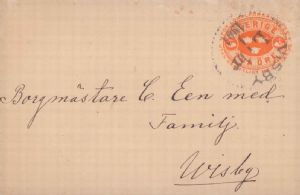 SVERIGE
WISBY
Borgmästare C. Een med
Familj
Wisby